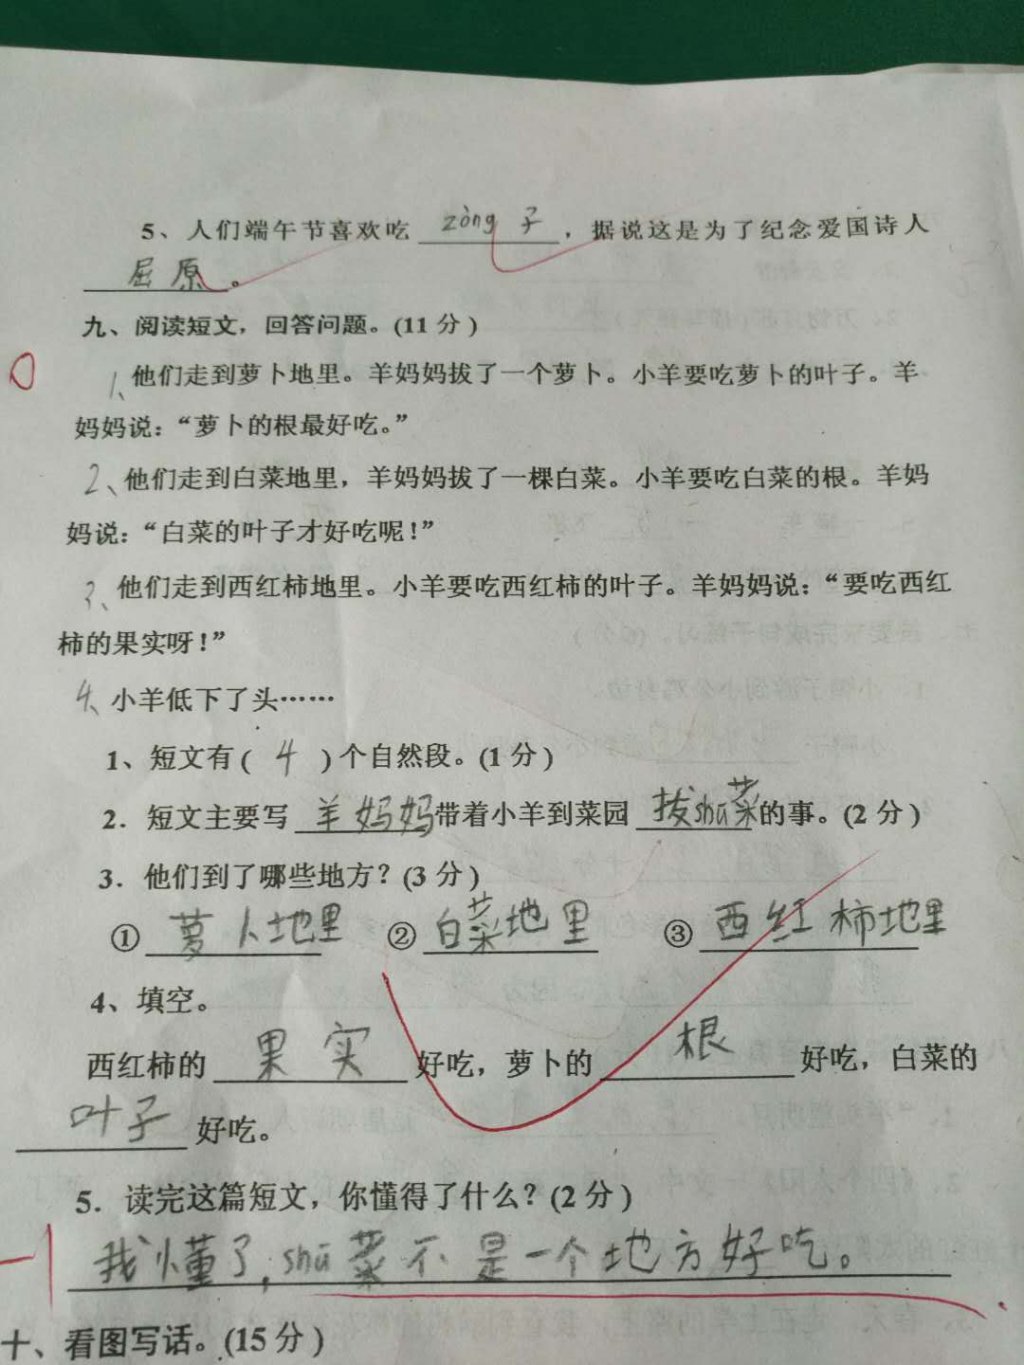 5、人们端午节喜欢吃 zòng 子，据说这是为了纪念爱国诗人
屈原。
九、阅读短文，回答问题。(11分)
0
1、他们走到萝卜地里。羊妈妈拔了一个萝卜。小羊要吃萝卜的叶子。羊
妈妈说：“萝卜的根最好吃。”
2、他们走到白菜地里，羊妈妈拔了一棵白菜。小羊要吃白菜的根。羊妈
妈说：“白菜的叶子才好吃呢！”
3、他们走到西红柿地里。小羊要吃西红柿的叶子。羊妈妈说：“要吃西红
柿的果实呀！”
4、小羊低下了头……
1、短文有( 4 )个自然段。(1分)
2．短文主要写 羊妈妈带着小羊到菜园 拔shū菜的事。(2分)
3．他们到了哪些地方？(3分)
① 萝卜地里 ② 白菜地里 ③ 西红柿地里
4、填空。
西红柿的 果实 好吃，萝卜的 根 好吃，白菜的
叶子 好吃。
5．读完这篇短文，你懂得了什么？(2分)
-1 我懂了，shū菜不是一个地方好吃。
十、看图写话。(15分)